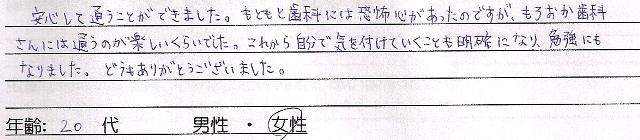 安心して通うことができました。もともと歯科には恐怖心があったのですが、もろおか歯科
さんには通うのが楽しいくらいでした。これから自分で気を付けていくことも明確になり、勉強にも
なりました。どうもありがとうございました。
年齢: 20 代 男性 ・ 女性